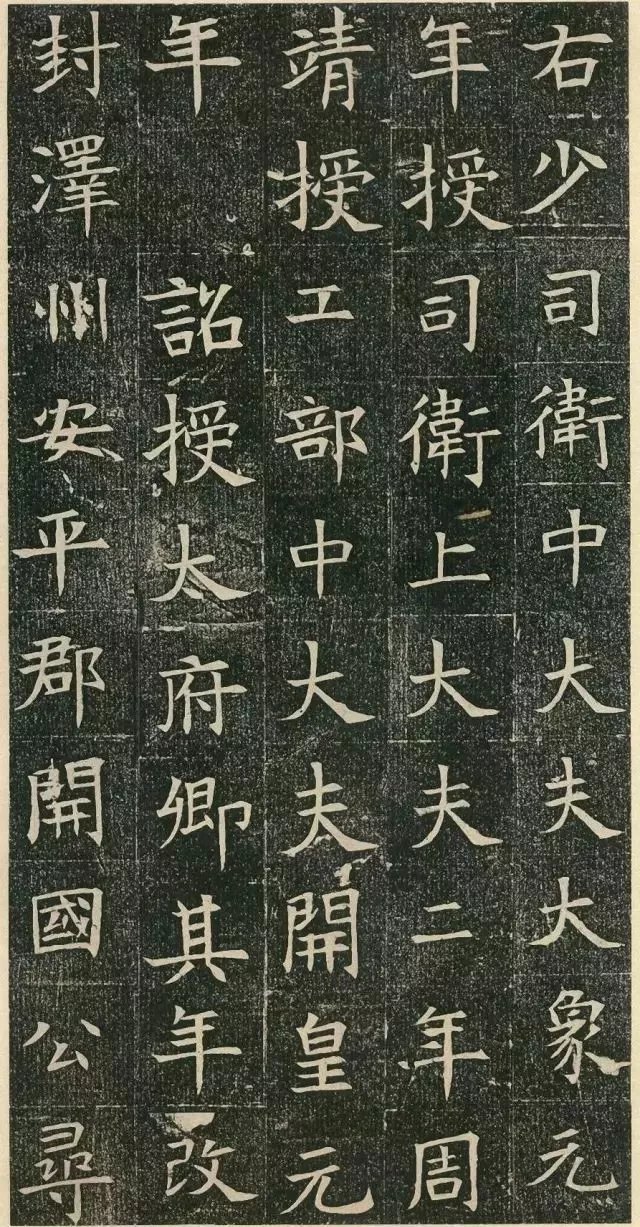 右少司衛中大夫大象元
年授司衛上大夫二年周
靖授工部中大夫開皇元
年詔授太府卿其年改
封澤州安平郡開國公尋